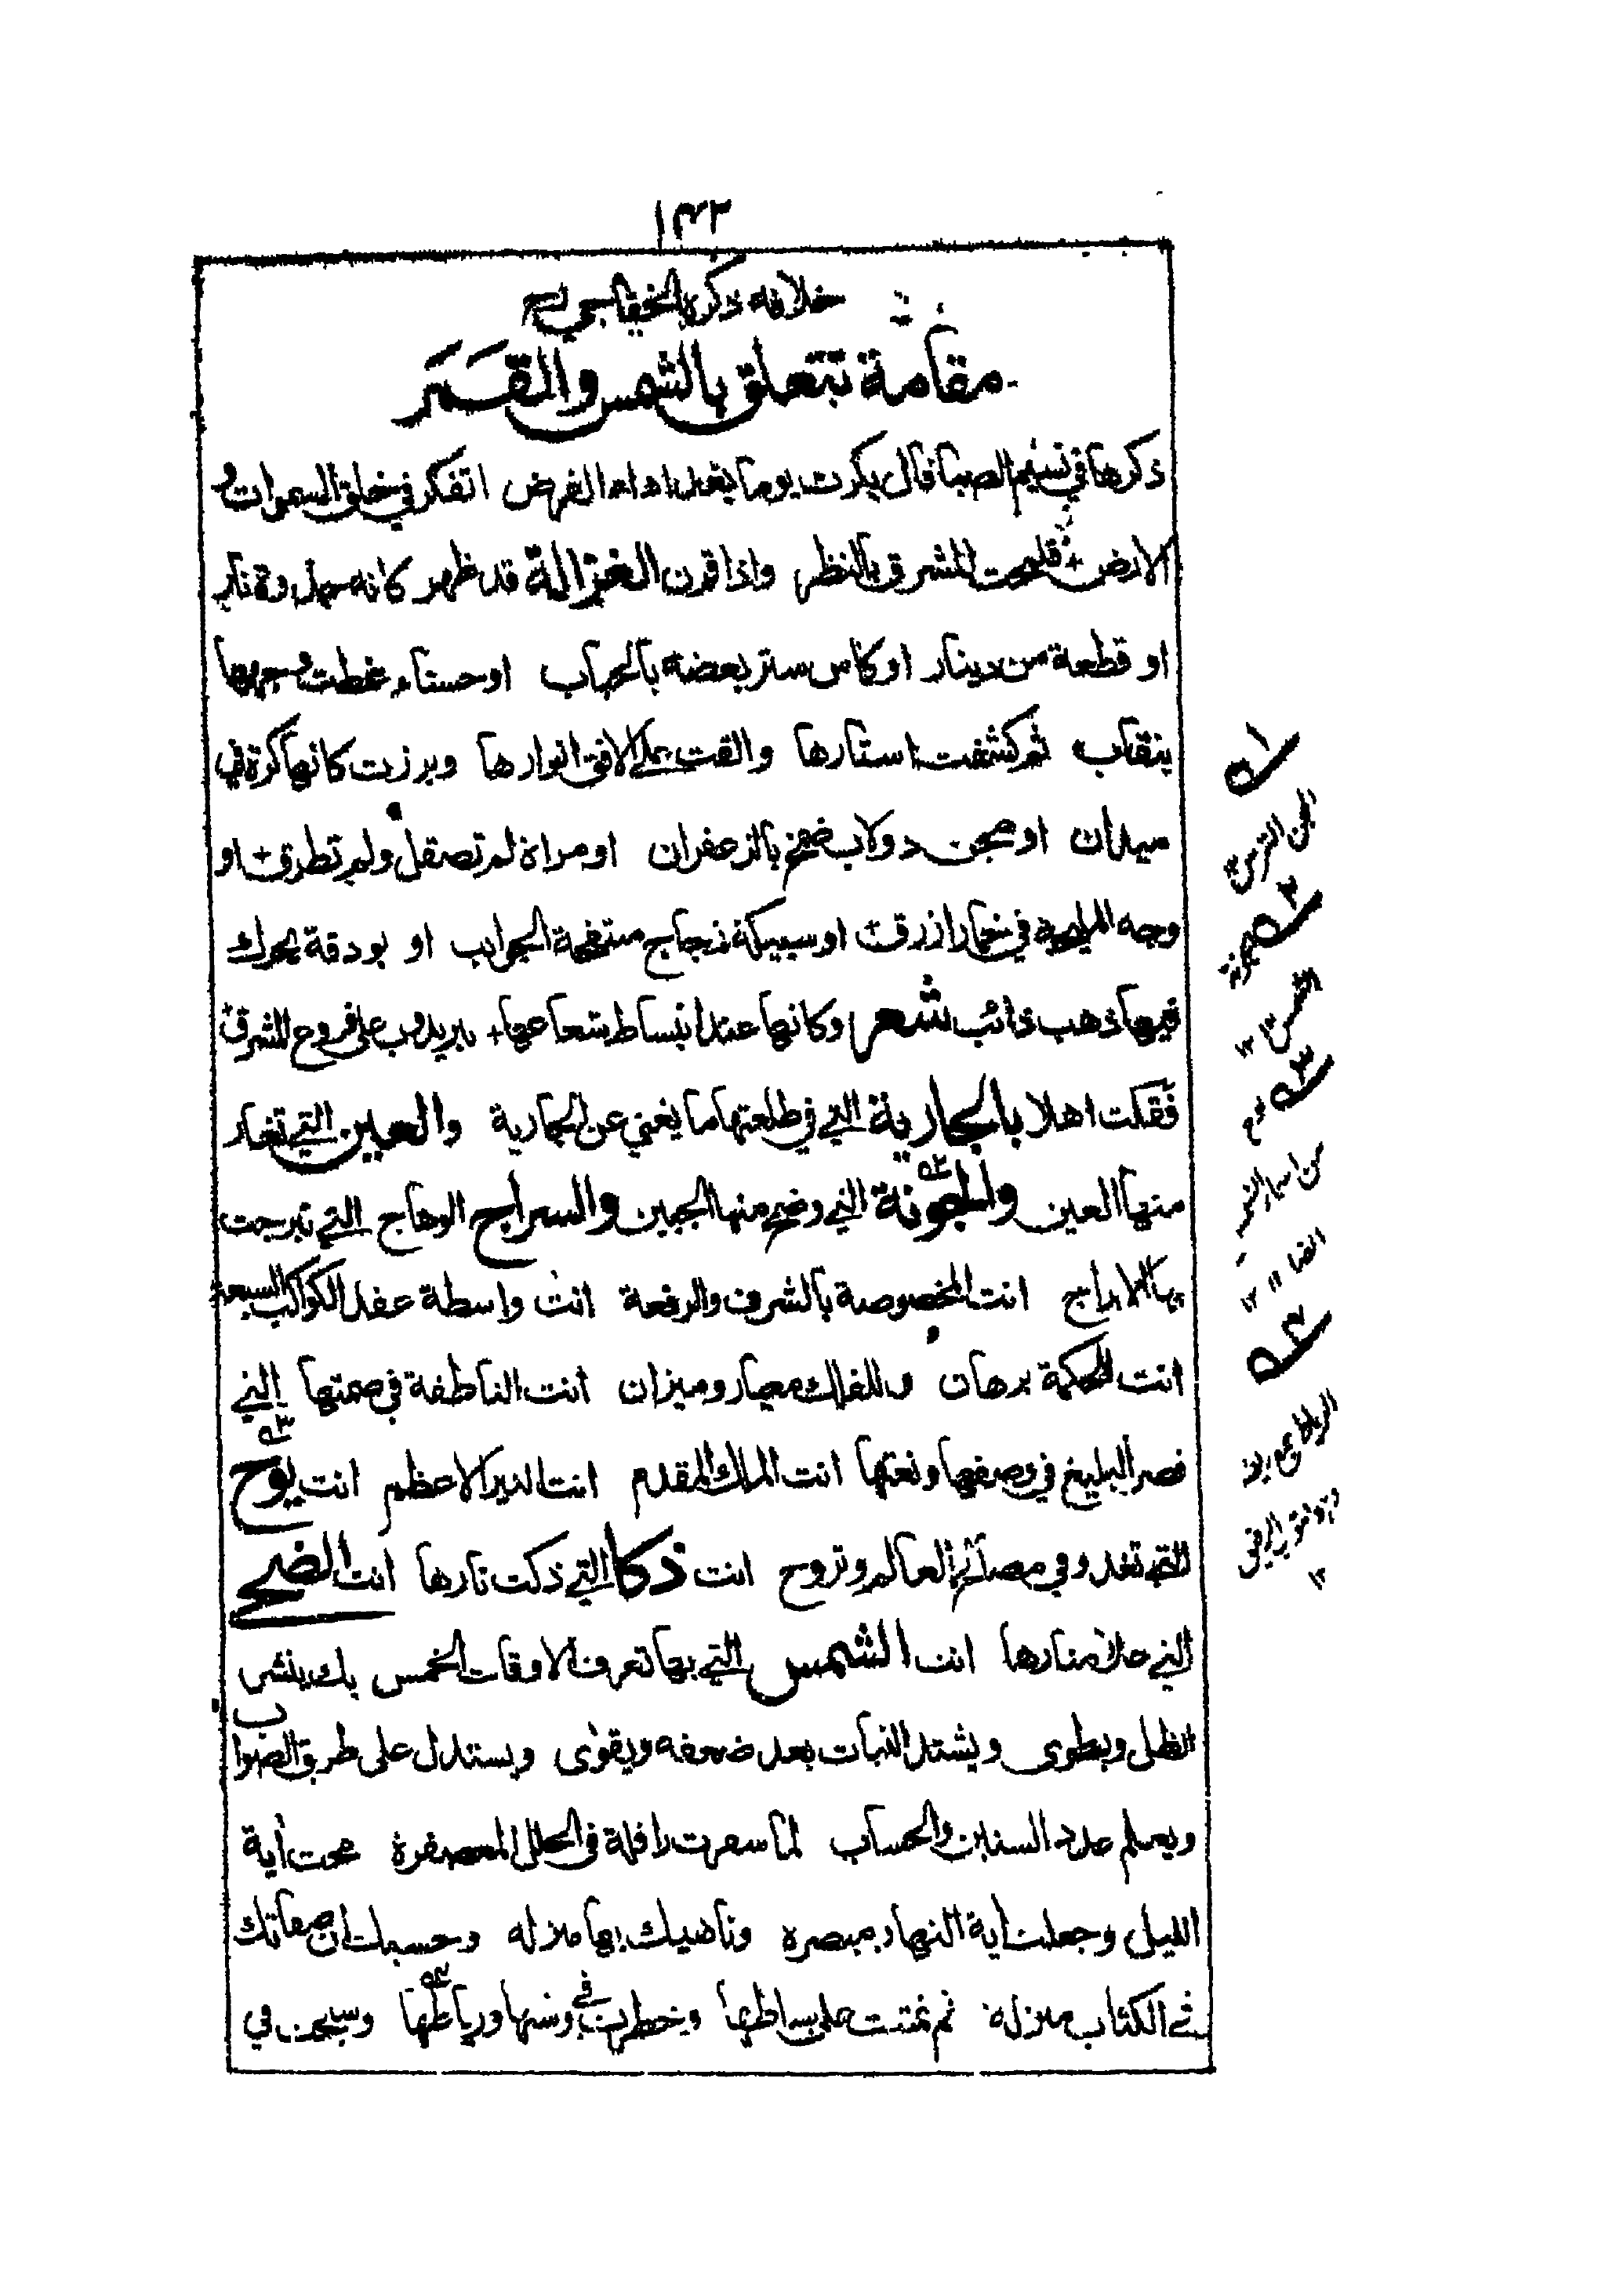 ١٤٢
خلافه ذكره الخفاجي رح
مقامة تتعلق بالشمس والقمر
ذكرها في نسيم الصبا فقال بكرت يوما بعد اداء الفرض اتفكر في خلق السموات و
الارض فلمحت المشرق بالنظر واذا قرن الغزالة قد ظهر كانه نار
او قطعة من دينار او كاس ستر بعضه بالحباب او حسناء غطت وجهها
بنقاب ثم كشفت استارها والقت على الافق انوارها وبرزت كانها كرة في
ميدان او مجن دولاب ضمخ بالزعفران او مراة لم تصقل ولم تطرق او
وجه المليحة في خمار ازرق او سبيكة زجاج منتفخة الجوانب او بودقة يحرك
فيها ذهب ذائب شعر وكانها عند انبساط شعاعها تبر يذوب على فروج المشرق
فقلت اهلا بالجارية التي في طلعتها ما يغني عن الجارية والعين التي تغار
منها العين والجونة التي وضح منها الجبين والسراج الوهاج التي تبرجت
بها الابراج انت المخصوصة بالشرف والرفعة انت واسطة عقد الكواكب السبعة
انت للحكمة برهان وللفلك معيار وميزان انت الناطقة في صمتها التي
قصر البليغ في وصفها ونعتها انت الملك المقدم انت النير الاعظم انت يوح
التي تغدو في مصالح العالم وتروح انت ذكا التي ذكت نارها انت الضح
التي علا منارها انت الشمس التي بها تعرف الاوقات الخمس بك ينشر
الظل ويطوى ويشتد النبات بعد ضعفه ويقوى ويستدل على طريق الصواب
ويعلم عدد السنين والحساب لما سفرت رافلة في الحلل المعصفرة محت آية
الليل وجعلت آية النهار مبصرة وناهيك بها منزلة وحسبك ان صفاتك
في الكتاب منزلة ثم تمتت على بساطها وخطرت في وشيها ورياطها وسبحت في
٥١
المجن الترس
٥٢
الشمس ١٢
٥٣
من اسماء الشمس
ايضا ١٢
٥٤
الرياط
١٢